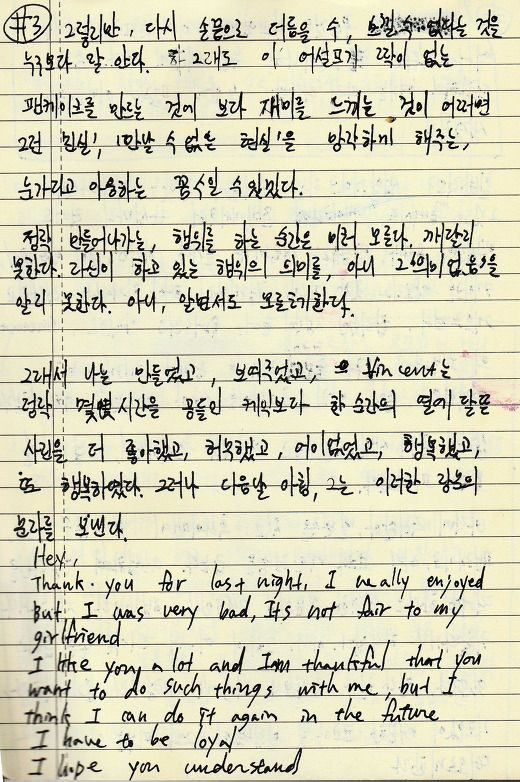 #3 그렇지만, 다시 손끝으로 더듬을 수, 느낄 수 없다는 것을
누구보다 잘 안다. 그래도 이 어설프기 짝이 없는
팬케이크를 만드는 것에 보다 재미를 느끼는 것이 어쩌면
그런 진실', '만날 수 없는 현실'을 망각하게 해주는,
눈가리고 아웅하는 꼼수일 수 있겠다.
정작 만들어나가는, 행위를 하는 순간은 미처 모른다. 깨달리
못한다. 자신이 하고 있는 행위의 의미를, 아니 그 '의미없음'을
알리 못한다. 아니, 알면서도 모른척한다.
그래서 나는 만들었고, 보여주었고, Vincent는
정작 몇 시간을 공들인 케익보다 한 순간의 열에 달뜬
사진을 더 좋아했고, 허둥했고, 어이없었고, 행복했고,
또 행복하였다. 그러나 다음날 아침, 그는 이러한 장문의
문자를 보낸다.
Hey,
Thank you for last night, I really enjoyed
But, I was very bad, Its not fair to my
girlfriend
I like you a lot and I am thankful that you
want to do such things with me but I
think I can do it again in the future
I have to be loyal
I hope you understand